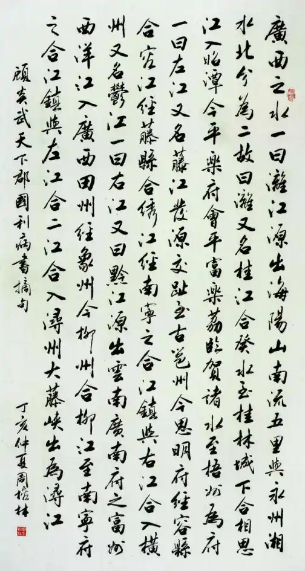 廣西之水一曰灕江出海陽山南流五里與永州湘
水北分為二故曰灕又名桂江合癸水至桂林城下合相思
江入昭潭今平樂府會平富樂荔臨賀諸水至梧州為府
一曰左江又名藤江發源交趾至古邕州今思明府經容縣
合容江經藤縣合繡江經南寧之合江鎮與右江合入橫
州又名鬱江一曰右江又曰黔江源出雲南廣南府之富州
西洋江入廣西田州經象州今柳州合柳江至南寧府
之合江鎮與左江合二江合入潯州大藤峽出為潯江
顧炎武天下郡國利病書摘句
丁亥仲夏周 林